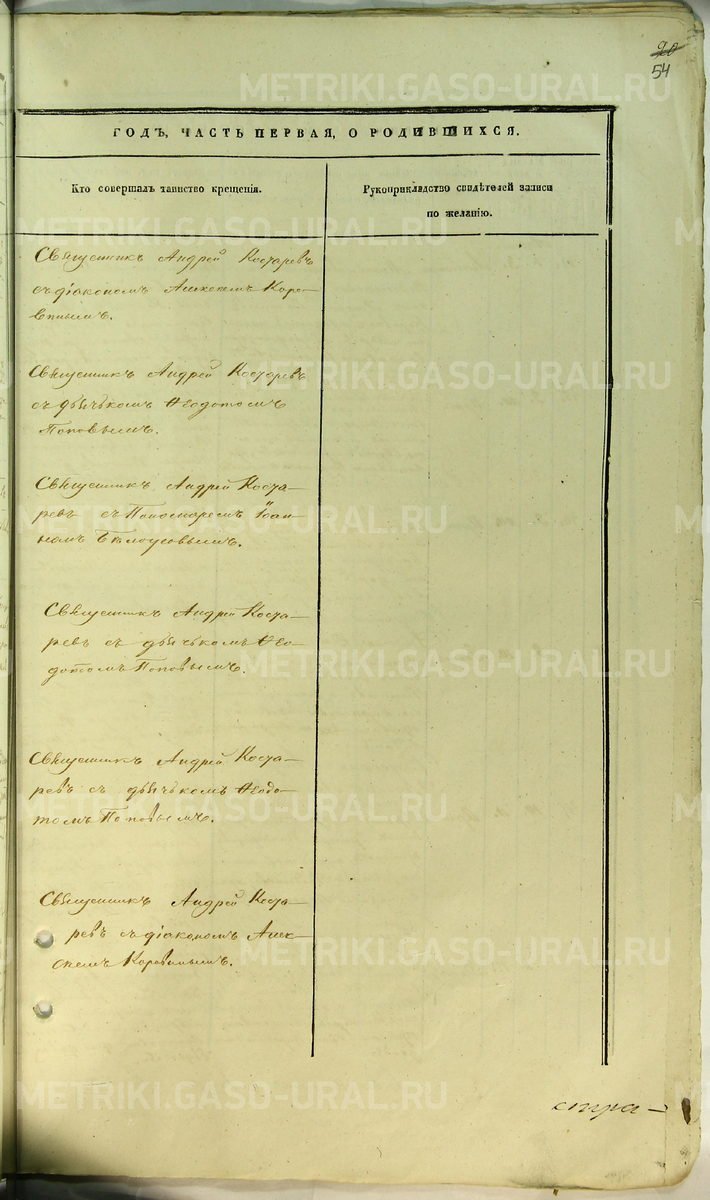 20
54
ГОДЪ, ЧАСТЬ ПЕРВАЯ, О РОДИВШИХСЯ.
Кто совершалъ таинство крещенія.
Рукоприкладство свидѣтелей записи
по желанію.
Священникъ Андрей Костаревъ
съ діакономъ Алексѣемъ Коро-
винымъ.
Священникъ Андрей Костаревъ
съ дьячькомъ Ѳеодотомъ
Поповымъ.
Священникъ Андрей Коста-
ревъ съ Пономаремъ Іоан-
номъ Бѣлоусовымъ.
Священникъ Андрей Коста-
ревъ съ дьячькомъ Ѳео-
дотомъ Поповымъ.
Священникъ Андрей Коста-
ревъ съ дьячькомъ Ѳеодо-
томъ Поповымъ.
Священникъ Андрей Коста-
ревъ съ діакономъ Алек-
сѣемъ Коровинымъ.
METRIKI.GASO-URAL.RU